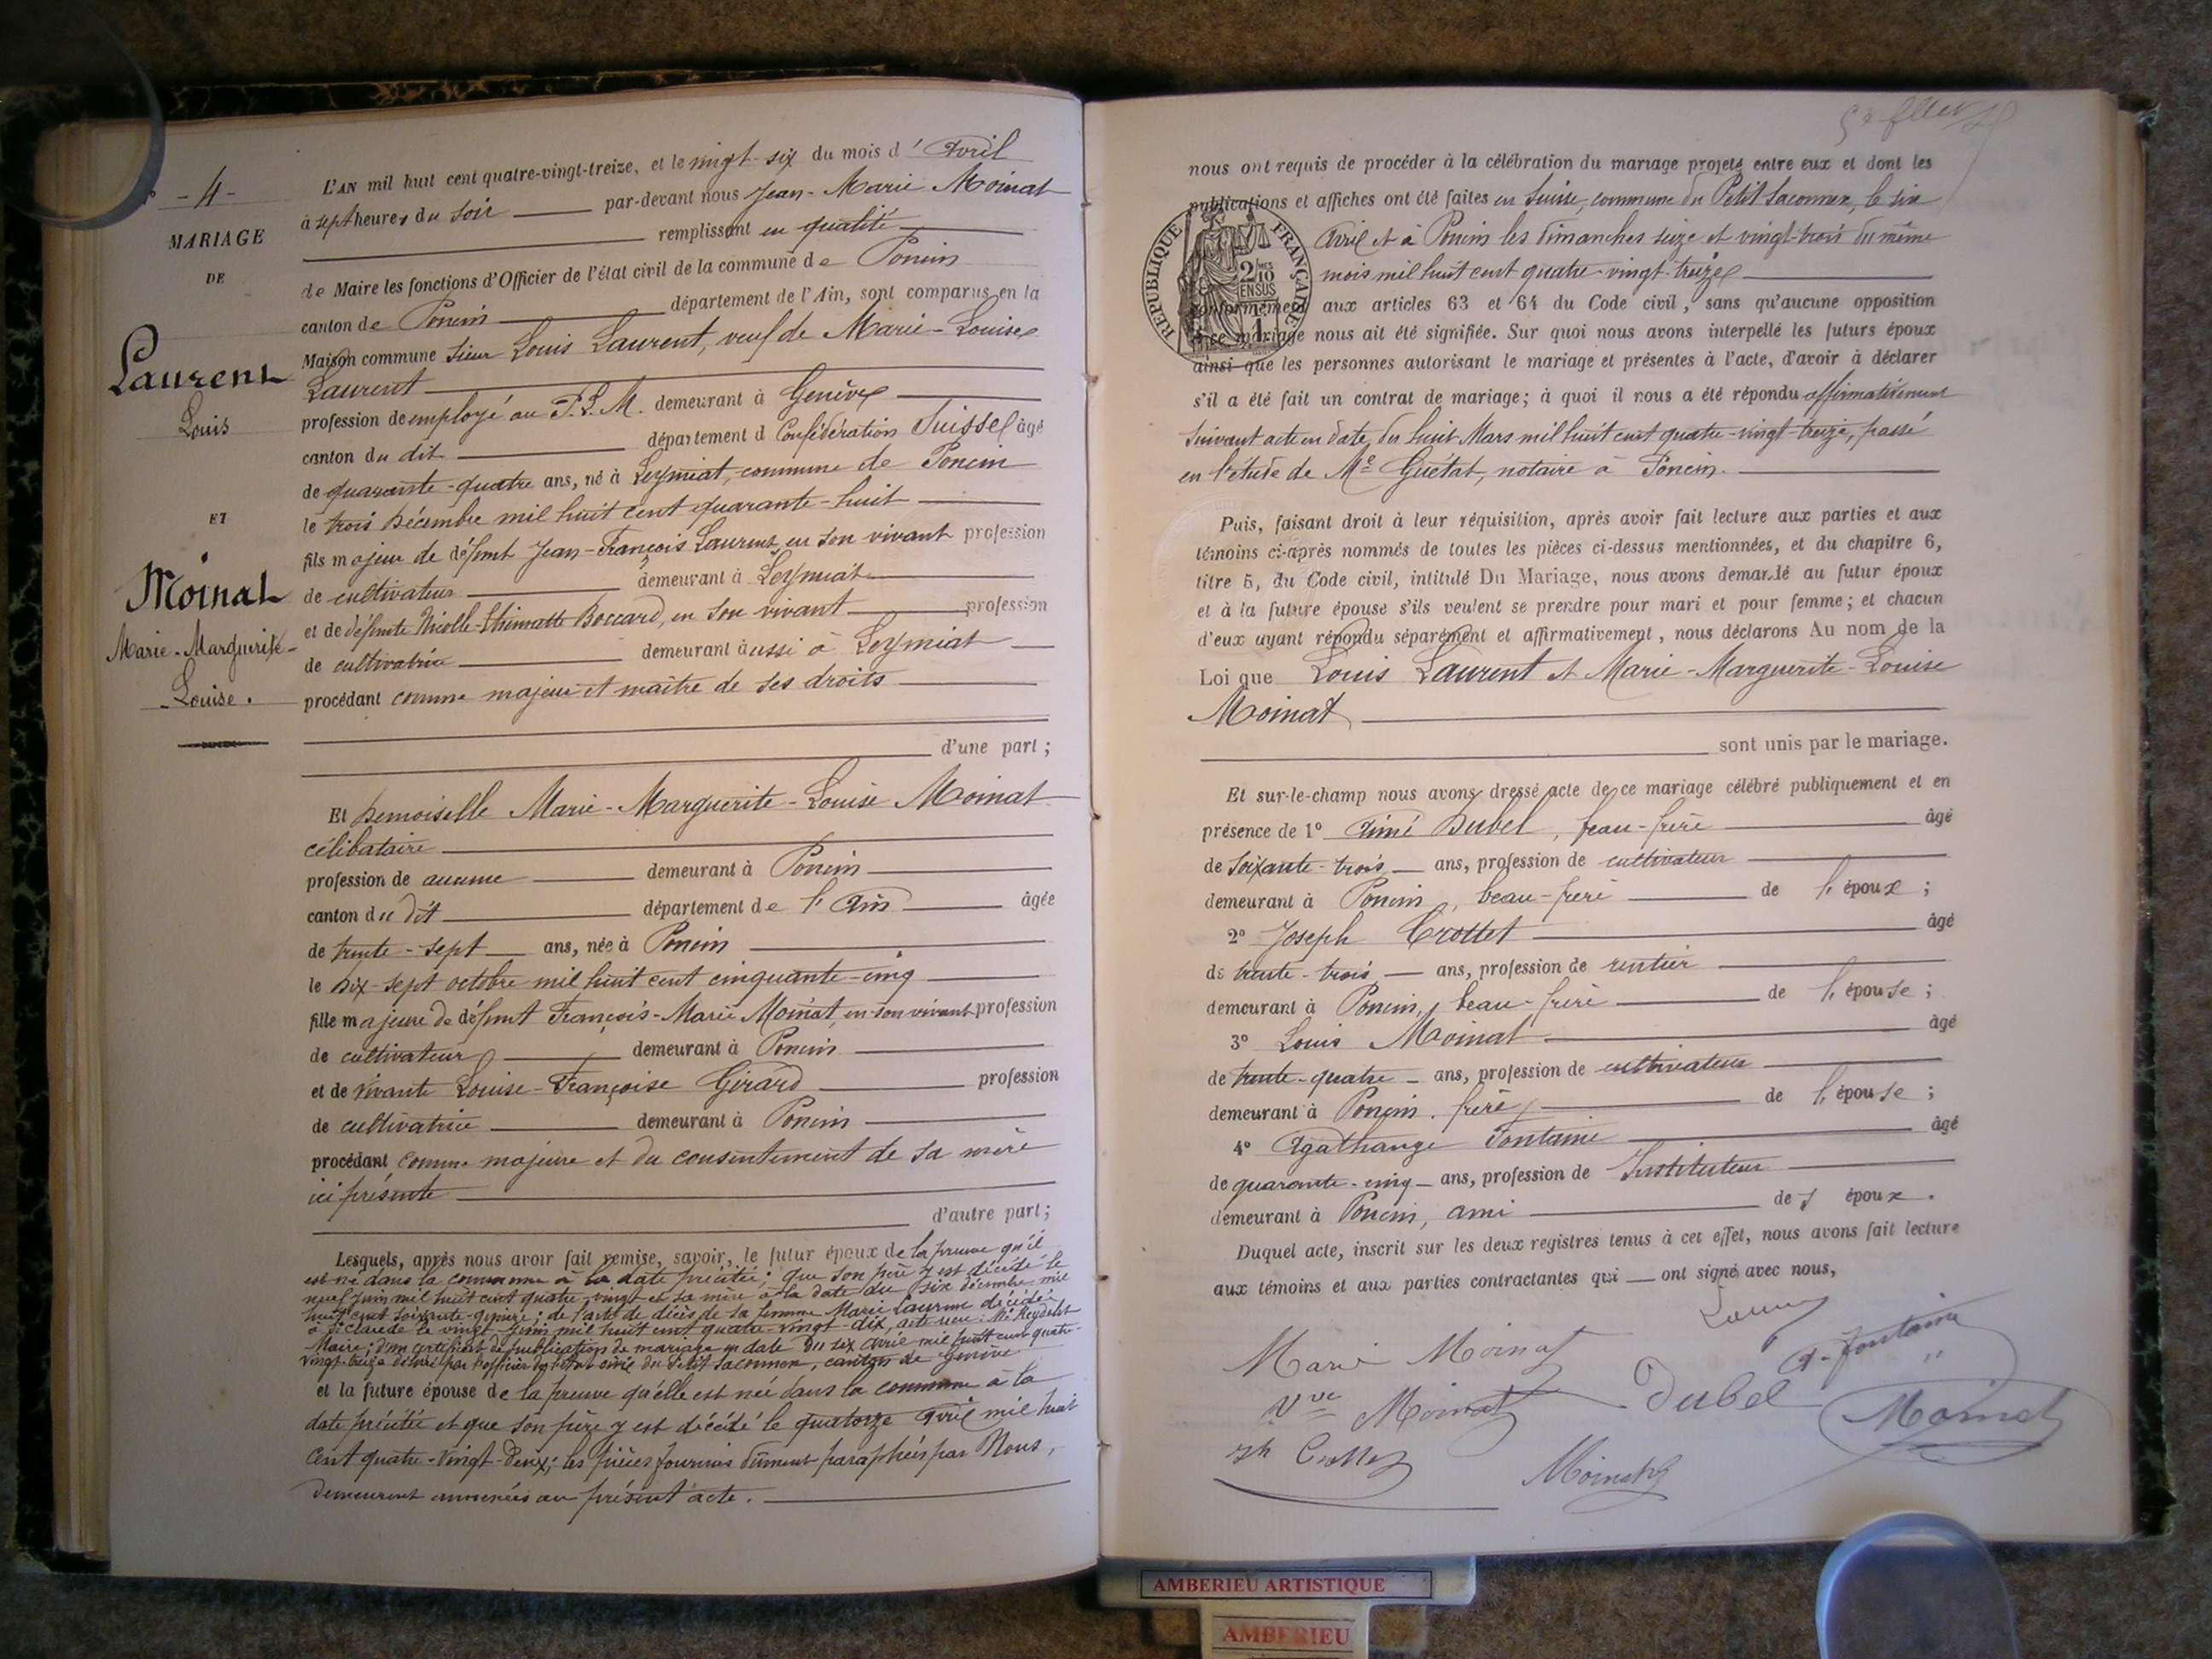 - 4 -
MARIAGE
DE
Laurent
Louis
ET
Moinat
Marie-Marguerite-
Louise.
L'AN mil huit cent quatre-vingt-treize, et le vingt-six du mois d'Avril
à sept heures du soir par-devant nous Jean-Marie Moinat
remplissant en qualité
de Maire les fonctions d'Officier de l'état civil de la commune de Poncin
canton de Poncin département de l'Ain, sont comparus en la
Maison commune Sieur Louis Laurent, veuf de Marie-Louise
Laurent
profession de employé au P.L.M. demeurant à Genève
canton du dit département d Confédération Suisse âgé
de quarante-quatre ans, né à Leymiat, commune de Poncin
le trois Décembre mil huit cent quarante-huit
fils majeur de défunt Jean-François Laurent en son vivant profession
de cultivateur demeurant à Leymiat
et de défunte Nicolle Boccard, en son vivant profession
de cultivatrice demeurant aussi à Leymiat
procédant comme majeur et maître de ses droits
d'une part ;
Et Demoiselle Marie-Marguerite-Louise Moinat
célibataire
profession de aucune demeurant à Poncin
canton du dit département de l'Ain âgée
de trente-sept ans, née à Poncin
le dix-sept octobre mil huit cent cinquante-cinq
fille majeure de défunt François-Marie Moinat, en son vivant profession
de cultivateur demeurant à Poncin
et de vivante Louise-Françoise Girard profession
de cultivatrice demeurant à Poncin
procédant comme majeure et du consentement de sa mère
ici présente
d'autre part ;
Lesquels, après nous avoir fait remise, savoir, le futur époux de la preuve qu'il
est né dans la commune à la date précitée ; que son père y est décédé le
neuf Juin mil huit cent quatre-vingt et sa mère à la date du six décembre mil
huit cent soixante-quinze ; de l'acte de décès de sa femme Marie Laurent décédée
à le vingt Juin mil huit cent quatre-vingt-dix, acte
Maire ; d'un certificat de publication de mariage en date du six avril mil huit cent quatre-
vingt-treize délivré par l'officier de l'état civil du Petit Saconnex, canton de Genève
et la future épouse de la preuve qu'elle est née dans la commune à la
date précitée et que son père y est décédé le quatorze Avril mil huit
cent quatre-vingt-deux ; les pièces fournies dûment paraphées par Nous,
demeurent annexées au présent acte.
nous ont requis de procéder à la célébration du mariage projeté entre eux et dont les
publications et affiches ont été faites en Suisse, commune du Petit Saconnex, le six
Avril et à Poncin les dimanches seize et vingt-trois du même
mois mil huit cent quatre-vingt-treize
conformément aux articles 63 et 64 du Code civil, sans qu'aucune opposition
à ce mariage nous ait été signifiée. Sur quoi nous avons interpellé les futurs époux
ainsi que les personnes autorisant le mariage et présentes à l'acte, d'avoir à déclarer
s'il a été fait un contrat de mariage ; à quoi il nous a été répondu affirmativement
suivant acte en date du huit Mars mil huit cent quatre-vingt-treize, passé
en l'étude de Me Guétat, notaire à Poncin.
RÉPUBLIQUE FRANÇAISE
2/10 EN SUS
Puis, faisant droit à leur réquisition, après avoir fait lecture aux parties et aux
témoins ci-après nommés de toutes les pièces ci-dessus mentionnées, et du chapitre 6,
titre 5, du Code civil, intitulé Du Mariage, nous avons demandé au futur époux
et à la future épouse s'ils veulent se prendre pour mari et pour femme ; et chacun
d'eux ayant répondu séparément et affirmativement, nous déclarons Au nom de la
Loi que Louis Laurent et Marie-Marguerite-Louise
Moinat
sont unis par le mariage.
Et sur-le-champ nous avons dressé acte de ce mariage célébré publiquement et en
présence de 1° Aimé Dubel, beau-frère âgé
de soixante-trois ans, profession de cultivateur
demeurant à Poncin, beau-frère de l'époux ;
2° Joseph Crottet âgé
de trente-trois ans, profession de rentier
demeurant à Poncin, beau-frère de l'épouse ;
3° Louis Moinat âgé
de trente-quatre ans, profession de cultivateur
demeurant à Poncin, frère de l'épouse ;
4° Agathange Fontaine âgé
de quarante-cinq ans, profession de Instituteur
demeurant à Poncin, ami des époux.
Duquel acte, inscrit sur les deux registres tenus à cet effet, nous avons fait lecture
aux témoins et aux parties contractantes qui ont signé avec nous,
Marie Moinat
A. Fontaine
Vve Moinat
Dubel
Moinat
Jh Crottet
Moinat
AMBERIEU ARTISTIQUE
AMBERIEU